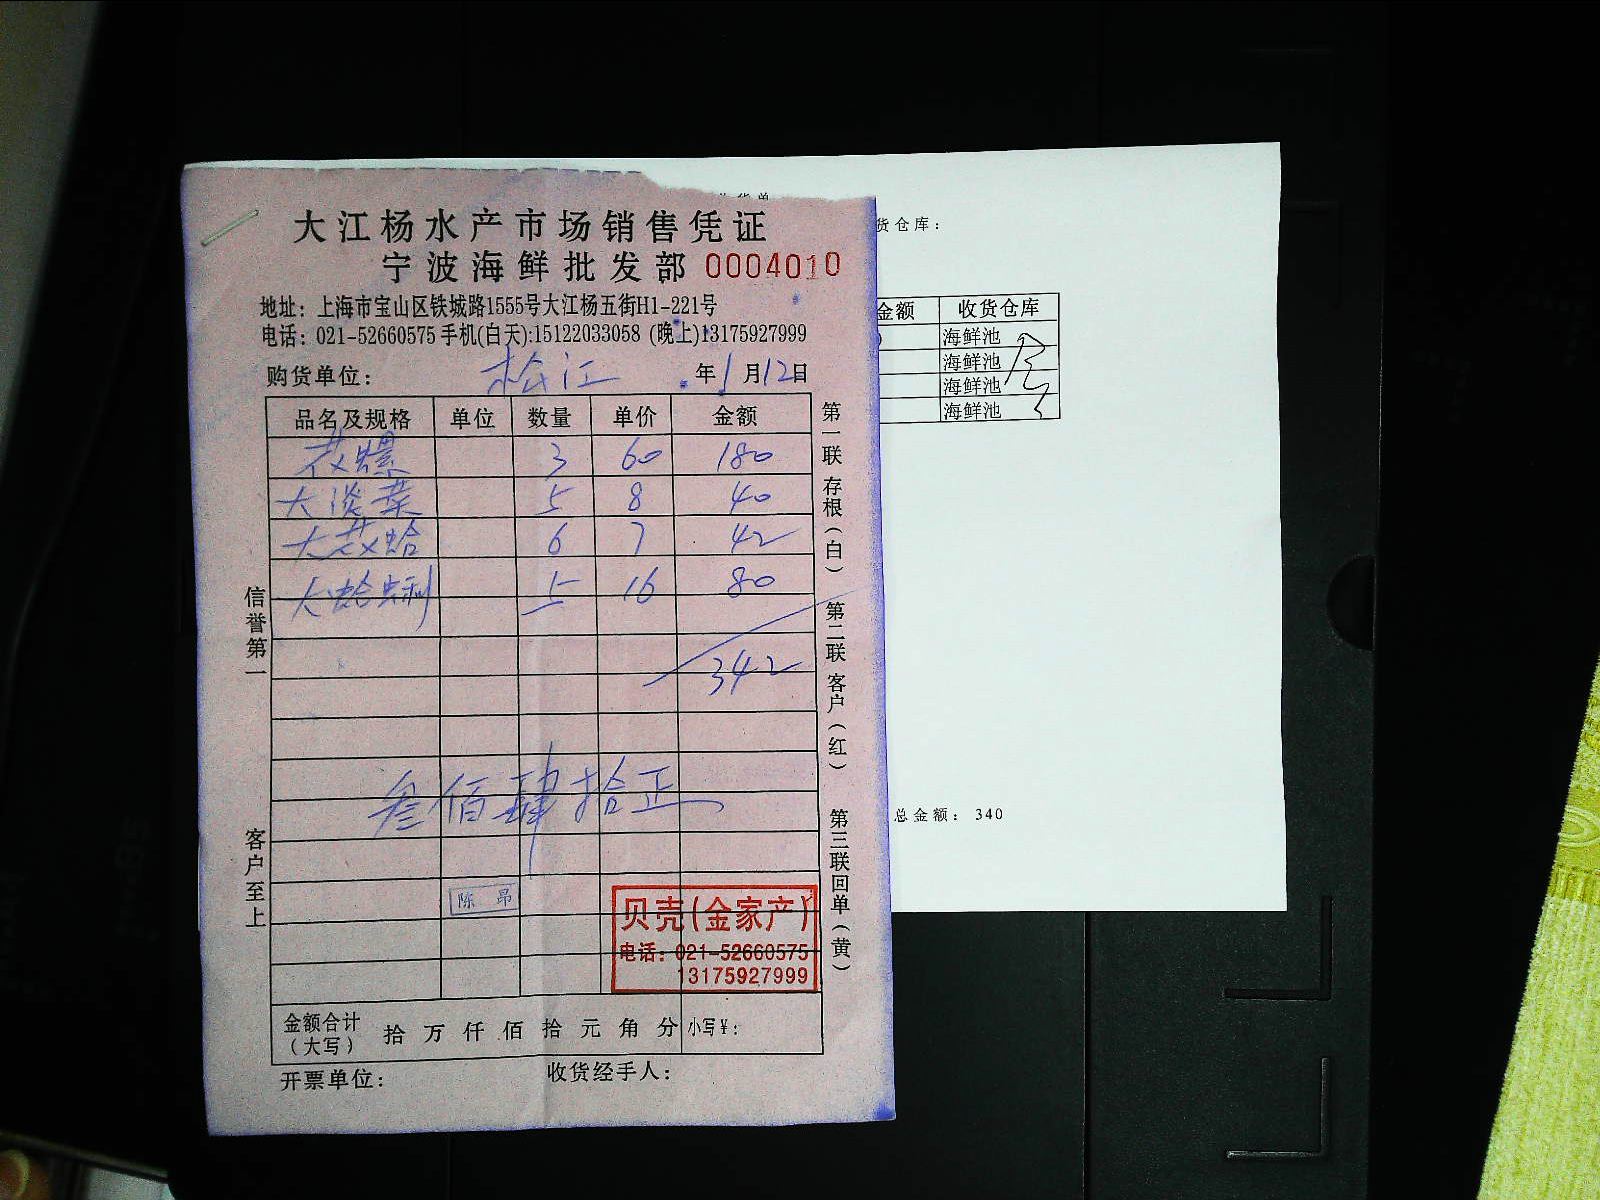 大江杨水产市场销售凭证
宁波海鲜批发部 0004010
地址：上海市宝山区铁城路1555号大江杨五街H1-221号
电话：021-52660575 手机(白天):15122033058 (晚上)13175927999
购货单位： 松江 年 1 月 12 日
品名及规格 单位 数量 单价 金额
花螺 3 60 180
大淡菜 5 8 40
大花蛤 6 7 42
大蛤蜊 5 16 80
342
叁佰肆拾正
陈昂
贝壳(金家产)
电话：021-52660575
13175927999
金额合计
（大写） 拾 万 仟 佰 拾 元 角 分 小写¥：
开票单位： 收货经手人：
信誉第一
客户至上
第一联 存根（白）
第二联 客户（红）
第三联 回单（黄）
货单
货仓库：
金额 收货仓库
海鲜池
海鲜池
海鲜池
海鲜池
总金额： 340